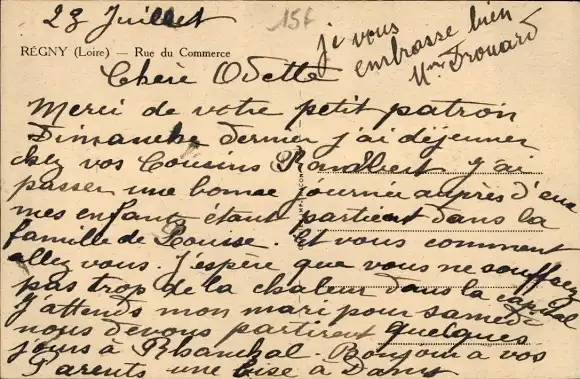 23 Juillet
15F
RÉGNY (Loire) — Rue du Commerce
ji vous
embrasse bien
Mme Drouard
Chère Odette
Merci de votre petit patron
Dimanche dernier j'ai déjeuner
chez vos Cousins j'ai
passer une bonne journée auprès d'eux
mes enfants étant partient dans la
famille de Louise. Et vous comment
allez vous. J'espère que vous ne souffrez
pas trop de la chaleur dans la capital
J'attends mon mari pour samedi
nous devons partirent quelques
jours à. Bonjour a vos
Parents une bise à